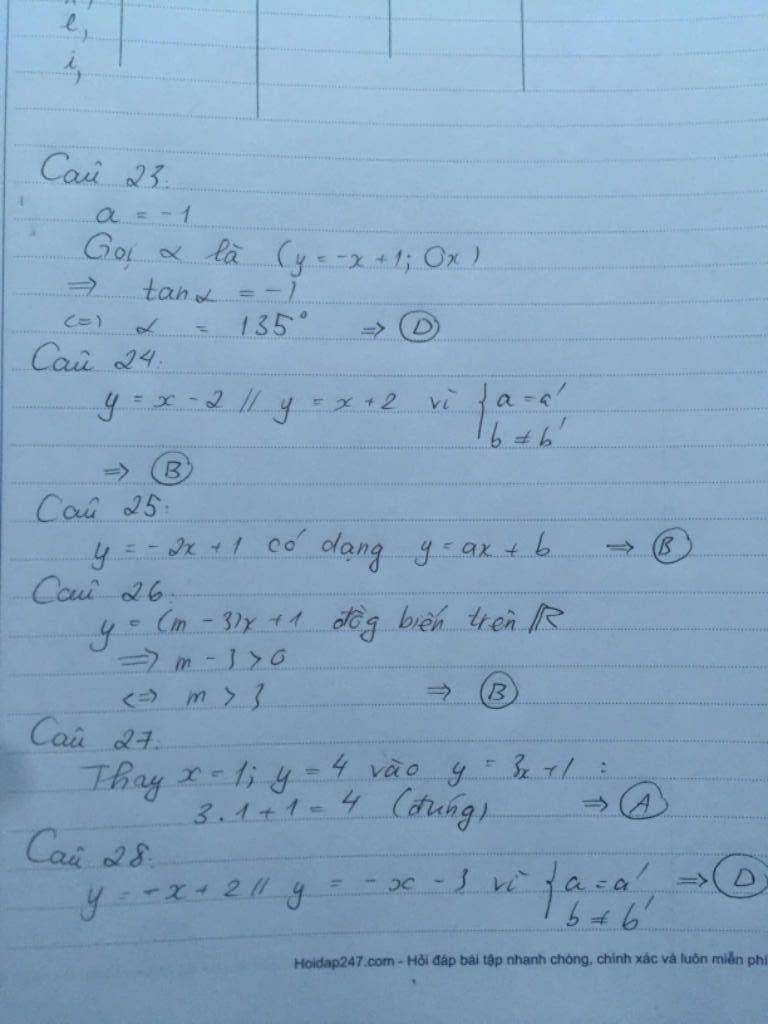 e,
i,
Câu 23:
a = -1
Gọi α là (y = -x + 1; Ox)
⇒ tanα = -1
⇔ α = 135° ⇒ Ⓓ
Câu 24:
y = x - 2 // y = x + 2 vì { a = a'
b ≠ b'
⇒ Ⓑ
Câu 25:
y = -2x + 1 có dạng y = ax + b ⇒ Ⓑ
Câu 26:
y = (m - 3)x + 1 đồg biến trên ℝ
⇒ m - 3 > 0
⇔ m > 3 ⇒ Ⓑ
Câu 27:
Thay x = 1; y = 4 vào y = 3x + 1 :
3.1 + 1 = 4 (đúng) ⇒ Ⓐ
Câu 28:
y = -x + 2 // y = -x - 3 vì { a = a' ⇒ Ⓓ
b ≠ b'
Hoidap247.com - Hỏi đáp bài tập nhanh chóng, chính xác và luôn miễn phí